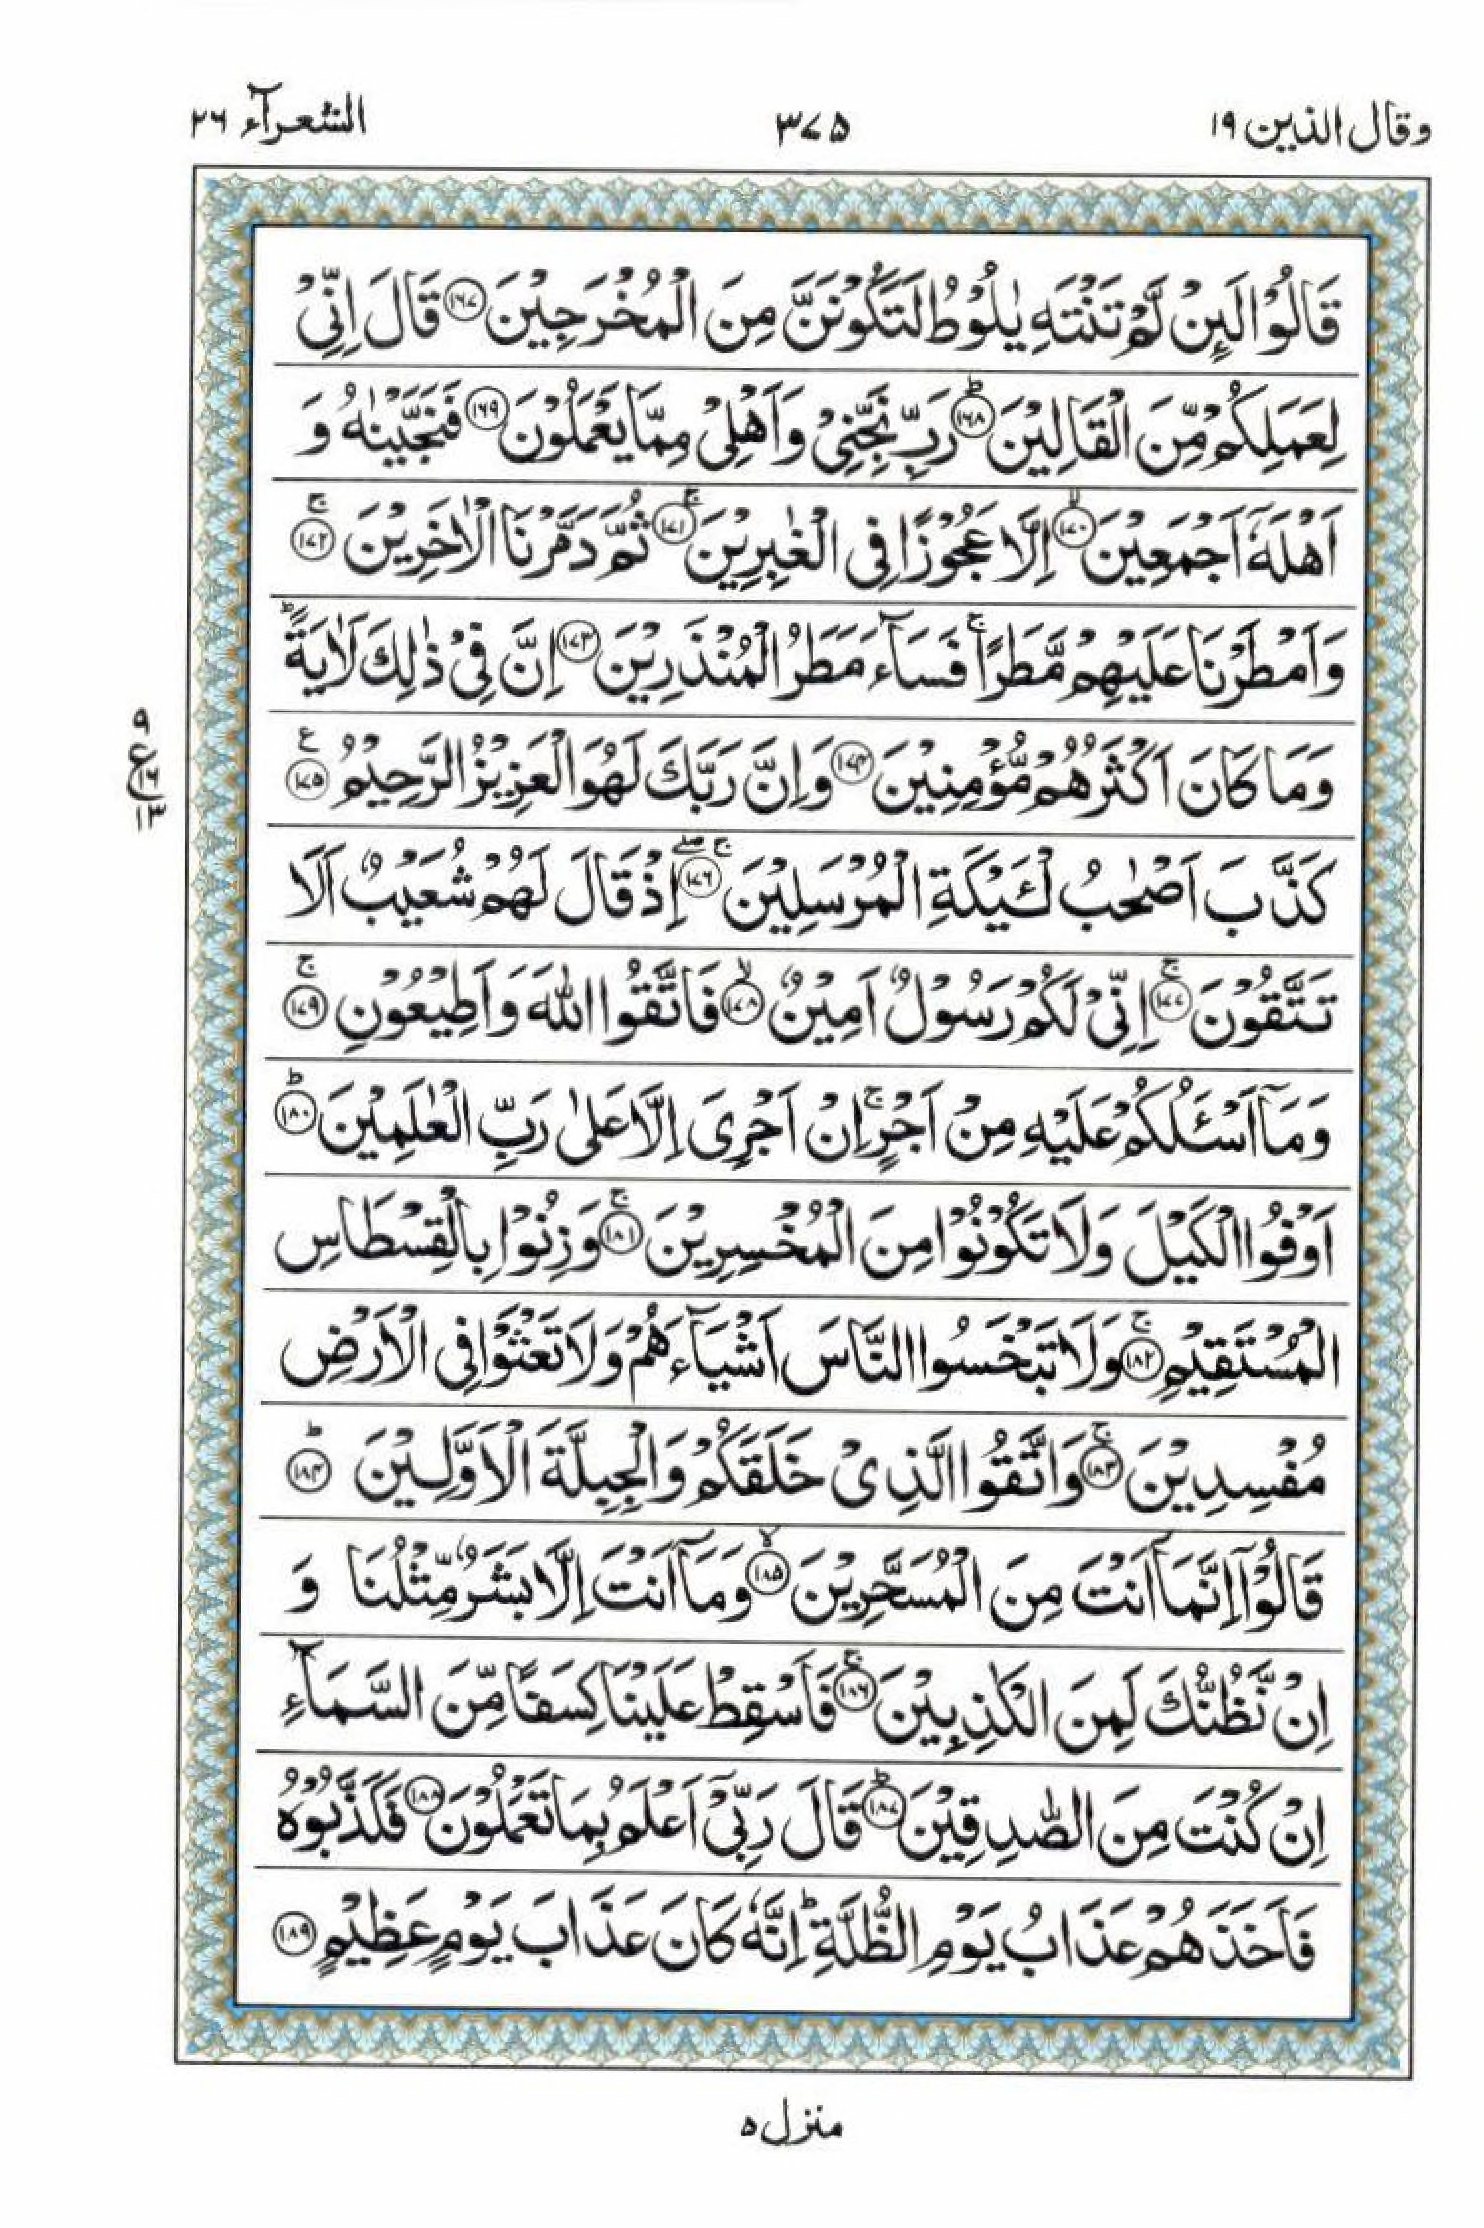 وقال الذین ۱۹
۳۷۵
الشعرآء ۲۶
قَالُوْا لَىِٕنْ لَّمْ تَنْتَهِ یٰلُوْطُ لَتَكُوْنَنَّ مِنَ الْمُخْرَجِیْنَ ﴿۱۶۷﴾ قَالَ اِنِّیْ
لِعَمَلِكُمْ مِّنَ الْقَالِیْنَ ؕ﴿۱۶۸﴾ رَبِّ نَجِّنِیْ وَ اَهْلِیْ مِمَّا یَعْمَلُوْنَ ﴿۱۶۹﴾ فَنَجَّیْنٰهُ وَ
اَهْلَهٗۤ اَجْمَعِیْنَ ۙ﴿۱۷۰﴾ اِلَّا عَجُوْزًا فِی الْغٰبِرِیْنَ ۚ﴿۱۷۱﴾ ثُمَّ دَمَّرْنَا الْاٰخَرِیْنَ ۚ﴿۱۷۲﴾
وَ اَمْطَرْنَا عَلَیْهِمْ مَّطَرًا ۚ فَسَآءَ مَطَرُ الْمُنْذَرِیْنَ ﴿۱۷۳﴾ اِنَّ فِیْ ذٰلِكَ لَاٰیَةً ؕ
وَ مَا كَانَ اَكْثَرُهُمْ مُّؤْمِنِیْنَ ﴿۱۷۴﴾ وَ اِنَّ رَبَّكَ لَهُوَ الْعَزِیْزُ الرَّحِیْمُ ﴿۱۷۵﴾ ع
۹
ع ۱۶
۱۳
كَذَّبَ اَصْحٰبُ لْـَٔیْكَةِ الْمُرْسَلِیْنَ ۚۖ﴿۱۷۶﴾ اِذْ قَالَ لَهُمْ شُعَیْبٌ اَلَا
تَتَّقُوْنَ ۚ﴿۱۷۷﴾ اِنِّیْ لَكُمْ رَسُوْلٌ اَمِیْنٌ ۙ﴿۱۷۸﴾ فَاتَّقُوا اللّٰهَ وَ اَطِیْعُوْنِ ۚ﴿۱۷۹﴾
وَ مَاۤ اَسْـَٔلُكُمْ عَلَیْهِ مِنْ اَجْرٍ ۚ اِنْ اَجْرِیَ اِلَّا عَلٰی رَبِّ الْعٰلَمِیْنَ ؕ﴿۱۸۰﴾
اَوْفُوا الْكَیْلَ وَ لَا تَكُوْنُوْا مِنَ الْمُخْسِرِیْنَ ۚ﴿۱۸۱﴾ وَ زِنُوْا بِالْقِسْطَاسِ
الْمُسْتَقِیْمِ ۚ﴿۱۸۲﴾ وَ لَا تَبْخَسُوا النَّاسَ اَشْیَآءَهُمْ وَ لَا تَعْثَوْا فِی الْاَرْضِ
مُفْسِدِیْنَ ۚ﴿۱۸۳﴾ وَ اتَّقُوا الَّذِیْ خَلَقَكُمْ وَ الْجِبِلَّةَ الْاَوَّلِیْنَ ؕ﴿۱۸۴﴾
قَالُوْۤا اِنَّمَاۤ اَنْتَ مِنَ الْمُسَحَّرِیْنَ ۙ﴿۱۸۵﴾ وَ مَاۤ اَنْتَ اِلَّا بَشَرٌ مِّثْلُنَا وَ
اِنْ نَّظُنُّكَ لَمِنَ الْكٰذِبِیْنَ ۚ﴿۱۸۶﴾ فَاَسْقِطْ عَلَیْنَا كِسَفًا مِّنَ السَّمَآءِ
اِنْ كُنْتَ مِنَ الصّٰدِقِیْنَ ؕ﴿۱۸۷﴾ قَالَ رَبِّیْۤ اَعْلَمُ بِمَا تَعْمَلُوْنَ ﴿۱۸۸﴾ فَكَذَّبُوْهُ
فَاَخَذَهُمْ عَذَابُ یَوْمِ الظُّلَّةِ ؕ اِنَّهٗ كَانَ عَذَابَ یَوْمٍ عَظِیْمٍ ﴿۱۸۹﴾
منزل ۵